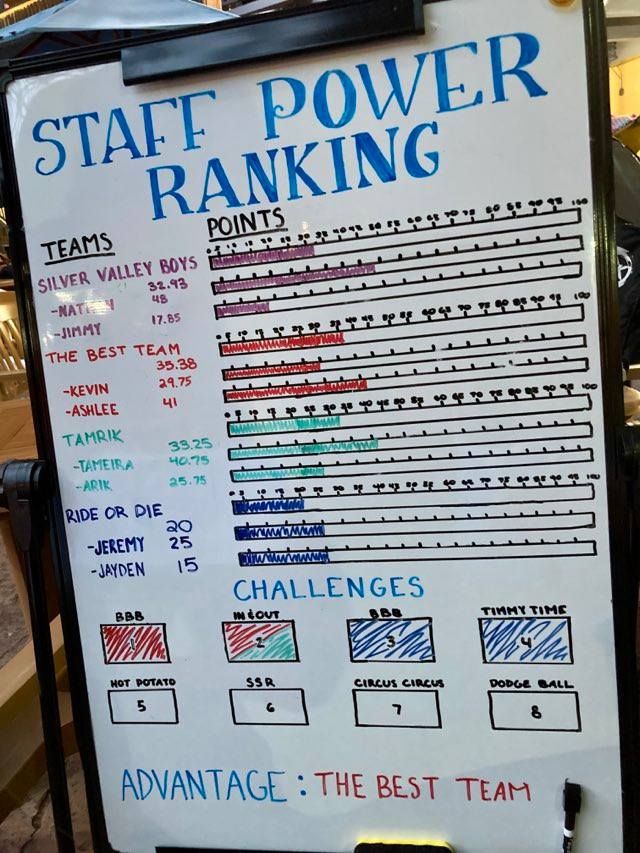 STAFF POWER
RANKING
TEAMS
POINTS
SILVER VALLEY BOYS
32.93
-NATHAN 48
-JIMMY 17.85
THE BEST TEAM
35.38
-KEVIN 29.75
-ASHLEE 41
TAMRIK 33.25
-TAMEIRA 40.75
-ARIK 25.75
RIDE OR DIE
20
-JEREMY 25
-JAYDEN 15
CHALLENGES
BBB IN & OUT BBB TIMMY TIME
1 2 3 4
HOT POTATO SSR CIRCUS CIRCUS DODGE BALL
5 6 7 8
ADVANTAGE: THE BEST TEAM